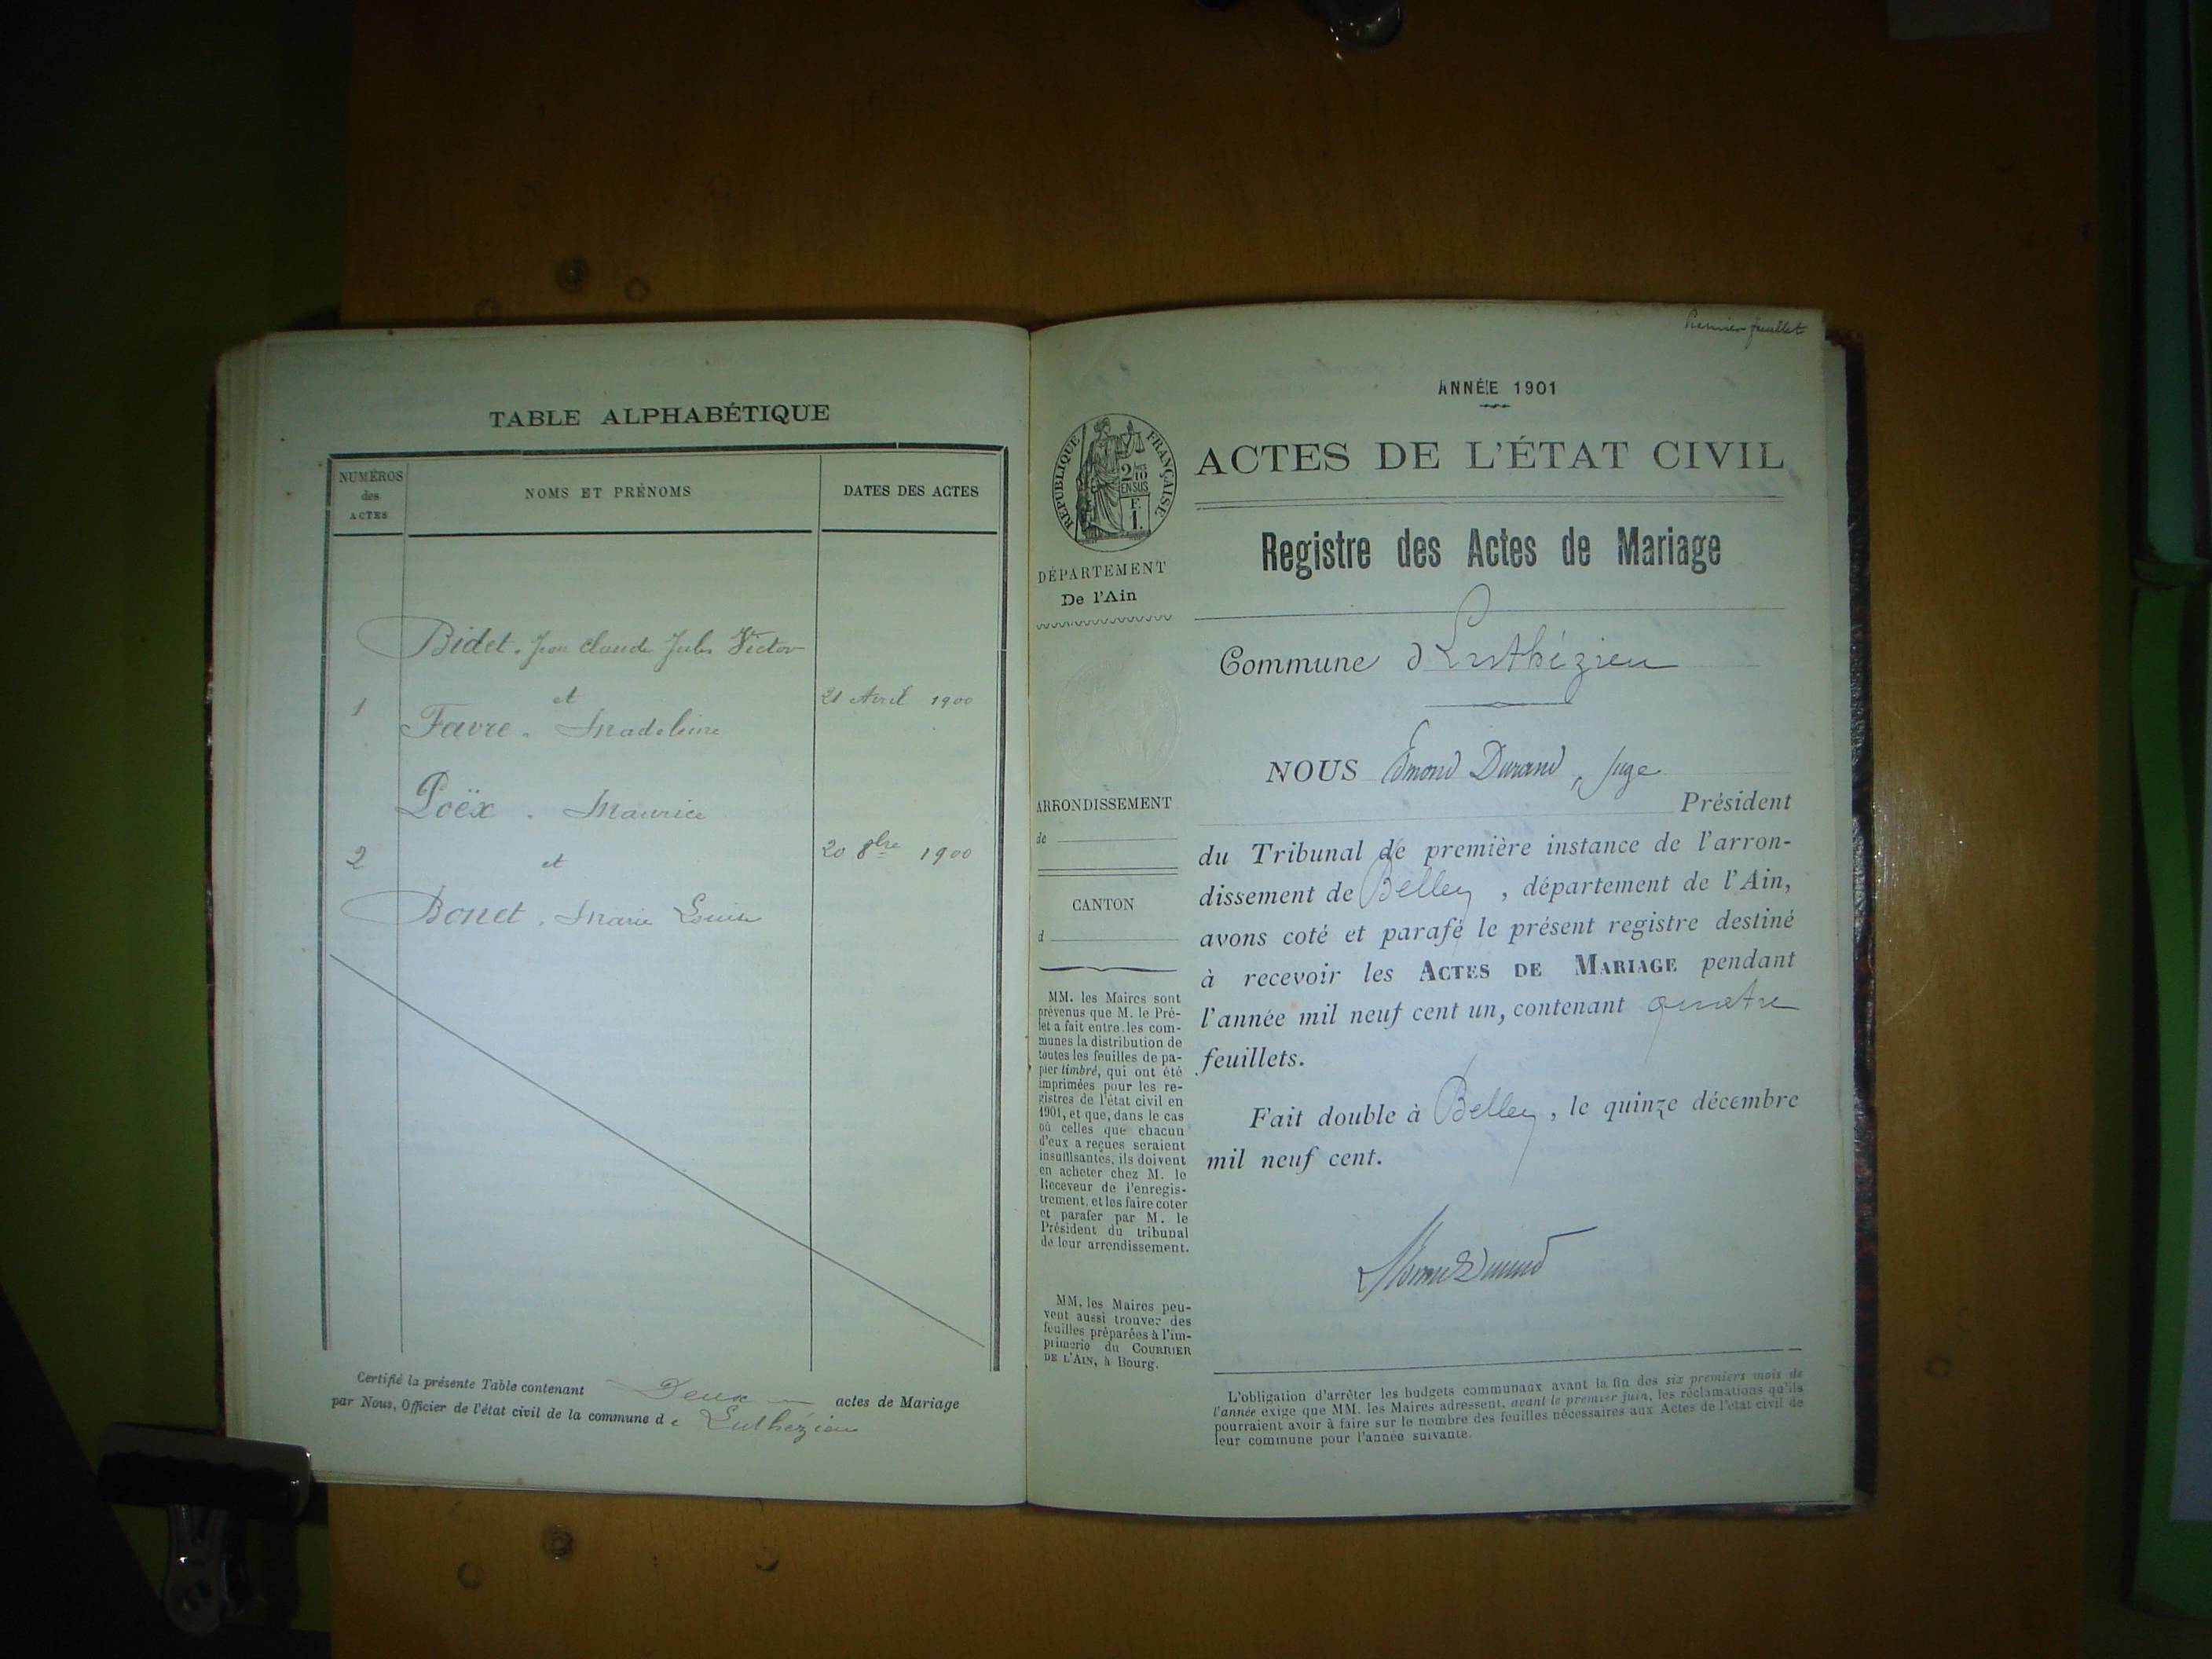 TABLE ALPHABÉTIQUE
NUMÉROS
des
ACTES
NOMS ET PRÉNOMS
DATES DES ACTES
Bidet. Jean Claude Jules Victor
1 et 21 Avril 1900
Favre. Madeleine
Poëx. Maurice
2 et 20 8bre 1900
Bonet. Marie Louise
Certifié la présente Table contenant Deux actes de Mariage
par Nous, Officier de l'état civil de la commune de Luthézieu
Premier feuillet
ANNÉE 1901
RÉPUBLIQUE FRANÇAISE
2/10
EN SUS
F.
1.
DÉPARTEMENT
De l'Ain
ARRONDISSEMENT
de
CANTON
d
MM. les Maires sont
prévenus que M. le Pré-
fet a fait entre les com-
munes la distribution de
toutes les feuilles de pa-
pier timbré, qui ont été
imprimées pour les re-
gistres de l'état civil en
1901, et que, dans le cas
où celles que chacun
d'eux a reçues seraient
insuffisantes, ils doivent
en acheter chez M. le
Receveur de l'enregis-
trement, et les faire coter
et parafer par M. le
Président du tribunal
de leur arrondissement.
MM. les Maires peu-
vent aussi trouver des
feuilles préparées à l'im-
primerie du COURRIER
DE L'AIN, à Bourg.
ACTES DE L'ÉTAT CIVIL
Registre des Actes de Mariage
Commune d Luthézieu
NOUS Edmond Durand, Juge
Président
du Tribunal de première instance de l'arron-
dissement de Belley, département de l'Ain,
avons coté et parafé le présent registre destiné
à recevoir les ACTES DE MARIAGE pendant
l'année mil neuf cent un, contenant quatre
feuillets.
Fait double à Belley, le quinze décembre
mil neuf cent.
L'obligation d'arrêter les budgets communaux avant la fin des six premiers mois de
l'année exige que MM. les Maires adressent, avant le premier juin, les réclamations qu'ils
pourraient avoir à faire sur le nombre des feuilles nécessaires aux Actes de l'état civil de
leur commune pour l'année suivante.